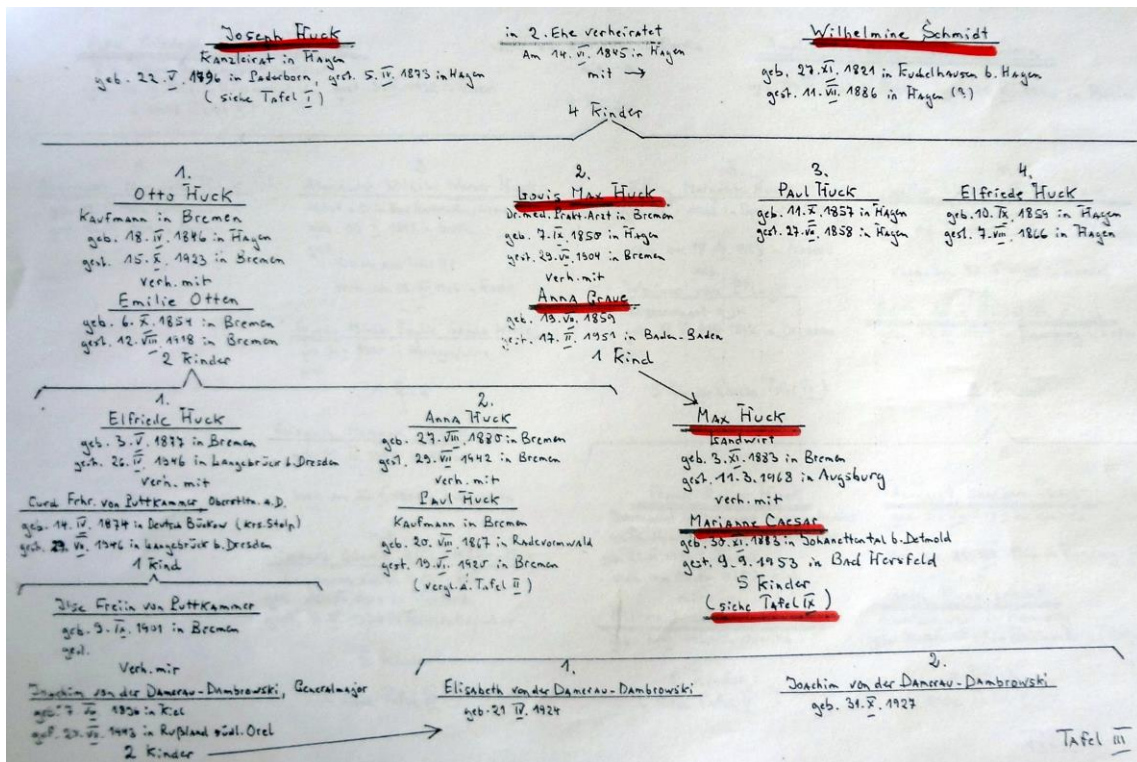 Joseph Huck
Kanzleirat in Hagen
geb. 22. V. 1796 in Paderborn, gest. 5. IV. 1873 in Hagen
(siehe Tafel I)
in 2. Ehe verheiratet
Am 14. VI. 1845 in Hagen
mit →
Wilhelmine Schmidt
geb. 27. XI. 1821 in Kuckelhausen b. Hagen
gest. 11. VII. 1886 in Hagen (?)
4 Kinder
1.
Otto Huck
Kaufmann in Bremen
geb. 18. IV. 1846 in Hagen
gest. 15. X. 1923 in Bremen
verh. mit
Emilie Otten
geb. 6. X. 1854 in Bremen
gest. 12. VIII. 1918 in Bremen
2 Kinder
2.
Louis Max Huck
Dr. med. Prakt. Arzt in Bremen
geb. 7. IX. 1850 in Hagen
gest. 29. VII. 1904 in Bremen
verh. mit
Anna Graue
geb. 19. VII. 1859
gest. 17. II. 1951 in Baden-Baden
1 Kind
3.
Paul Huck
geb. 11. X. 1857 in Hagen
gest. 27. VII. 1858 in Hagen
4.
Elfriede Huck
geb. 10. IX. 1859 in Hagen
gest. 7. VIII. 1866 in Hagen
1.
Elfriede Huck
geb. 3. V. 1877 in Bremen
gest. 26. IV. 1946 in Langebrück b. Dresden
verh. mit
Curd Frhr. von Puttkammer, Oberstltn. a.D.
geb. 14. IV. 1874 in Deutsch Bückow (Krs. Stolp)
gest. 29. VII. 1946 in Langebrück b. Dresden
1 Kind
2.
Anna Huck
geb. 27. VIII. 1880 in Bremen
gest. 29. VII. 1942 in Bremen
verh. mit
Paul Huck
Kaufmann in Bremen
geb. 20. VIII. 1867 in Radevormwald
gest. 19. VI. 1920 in Bremen
(vergl. a. Tafel II)
Max Huck
Landwirt
geb. 3. XI. 1883 in Bremen
gest. 11. 3. 1968 in Augsburg
verh. mit
Marianne Caesar
geb. 30. XI. 1883 in Johannettental b. Detmold
gest. 9. 9. 1953 in Bad Hersfeld
5 Kinder
(siehe Tafel IX)
Ilse Freiin von Puttkammer
geb. 9. IX. 1901 in Bremen
gest.
Verh. mit
Joachim von der Damerau-Dambrowski, Generalmajor
geb. 7. VII. 1896 in Kiel
gef. in Rußland südl. Orel
2 Kinder
1.
Elisabeth von der Damerau-Dambrowski
geb. 21 IV. 1924
2.
Joachim von der Damerau-Dambrowski
geb. 31. X. 1927
Tafel III